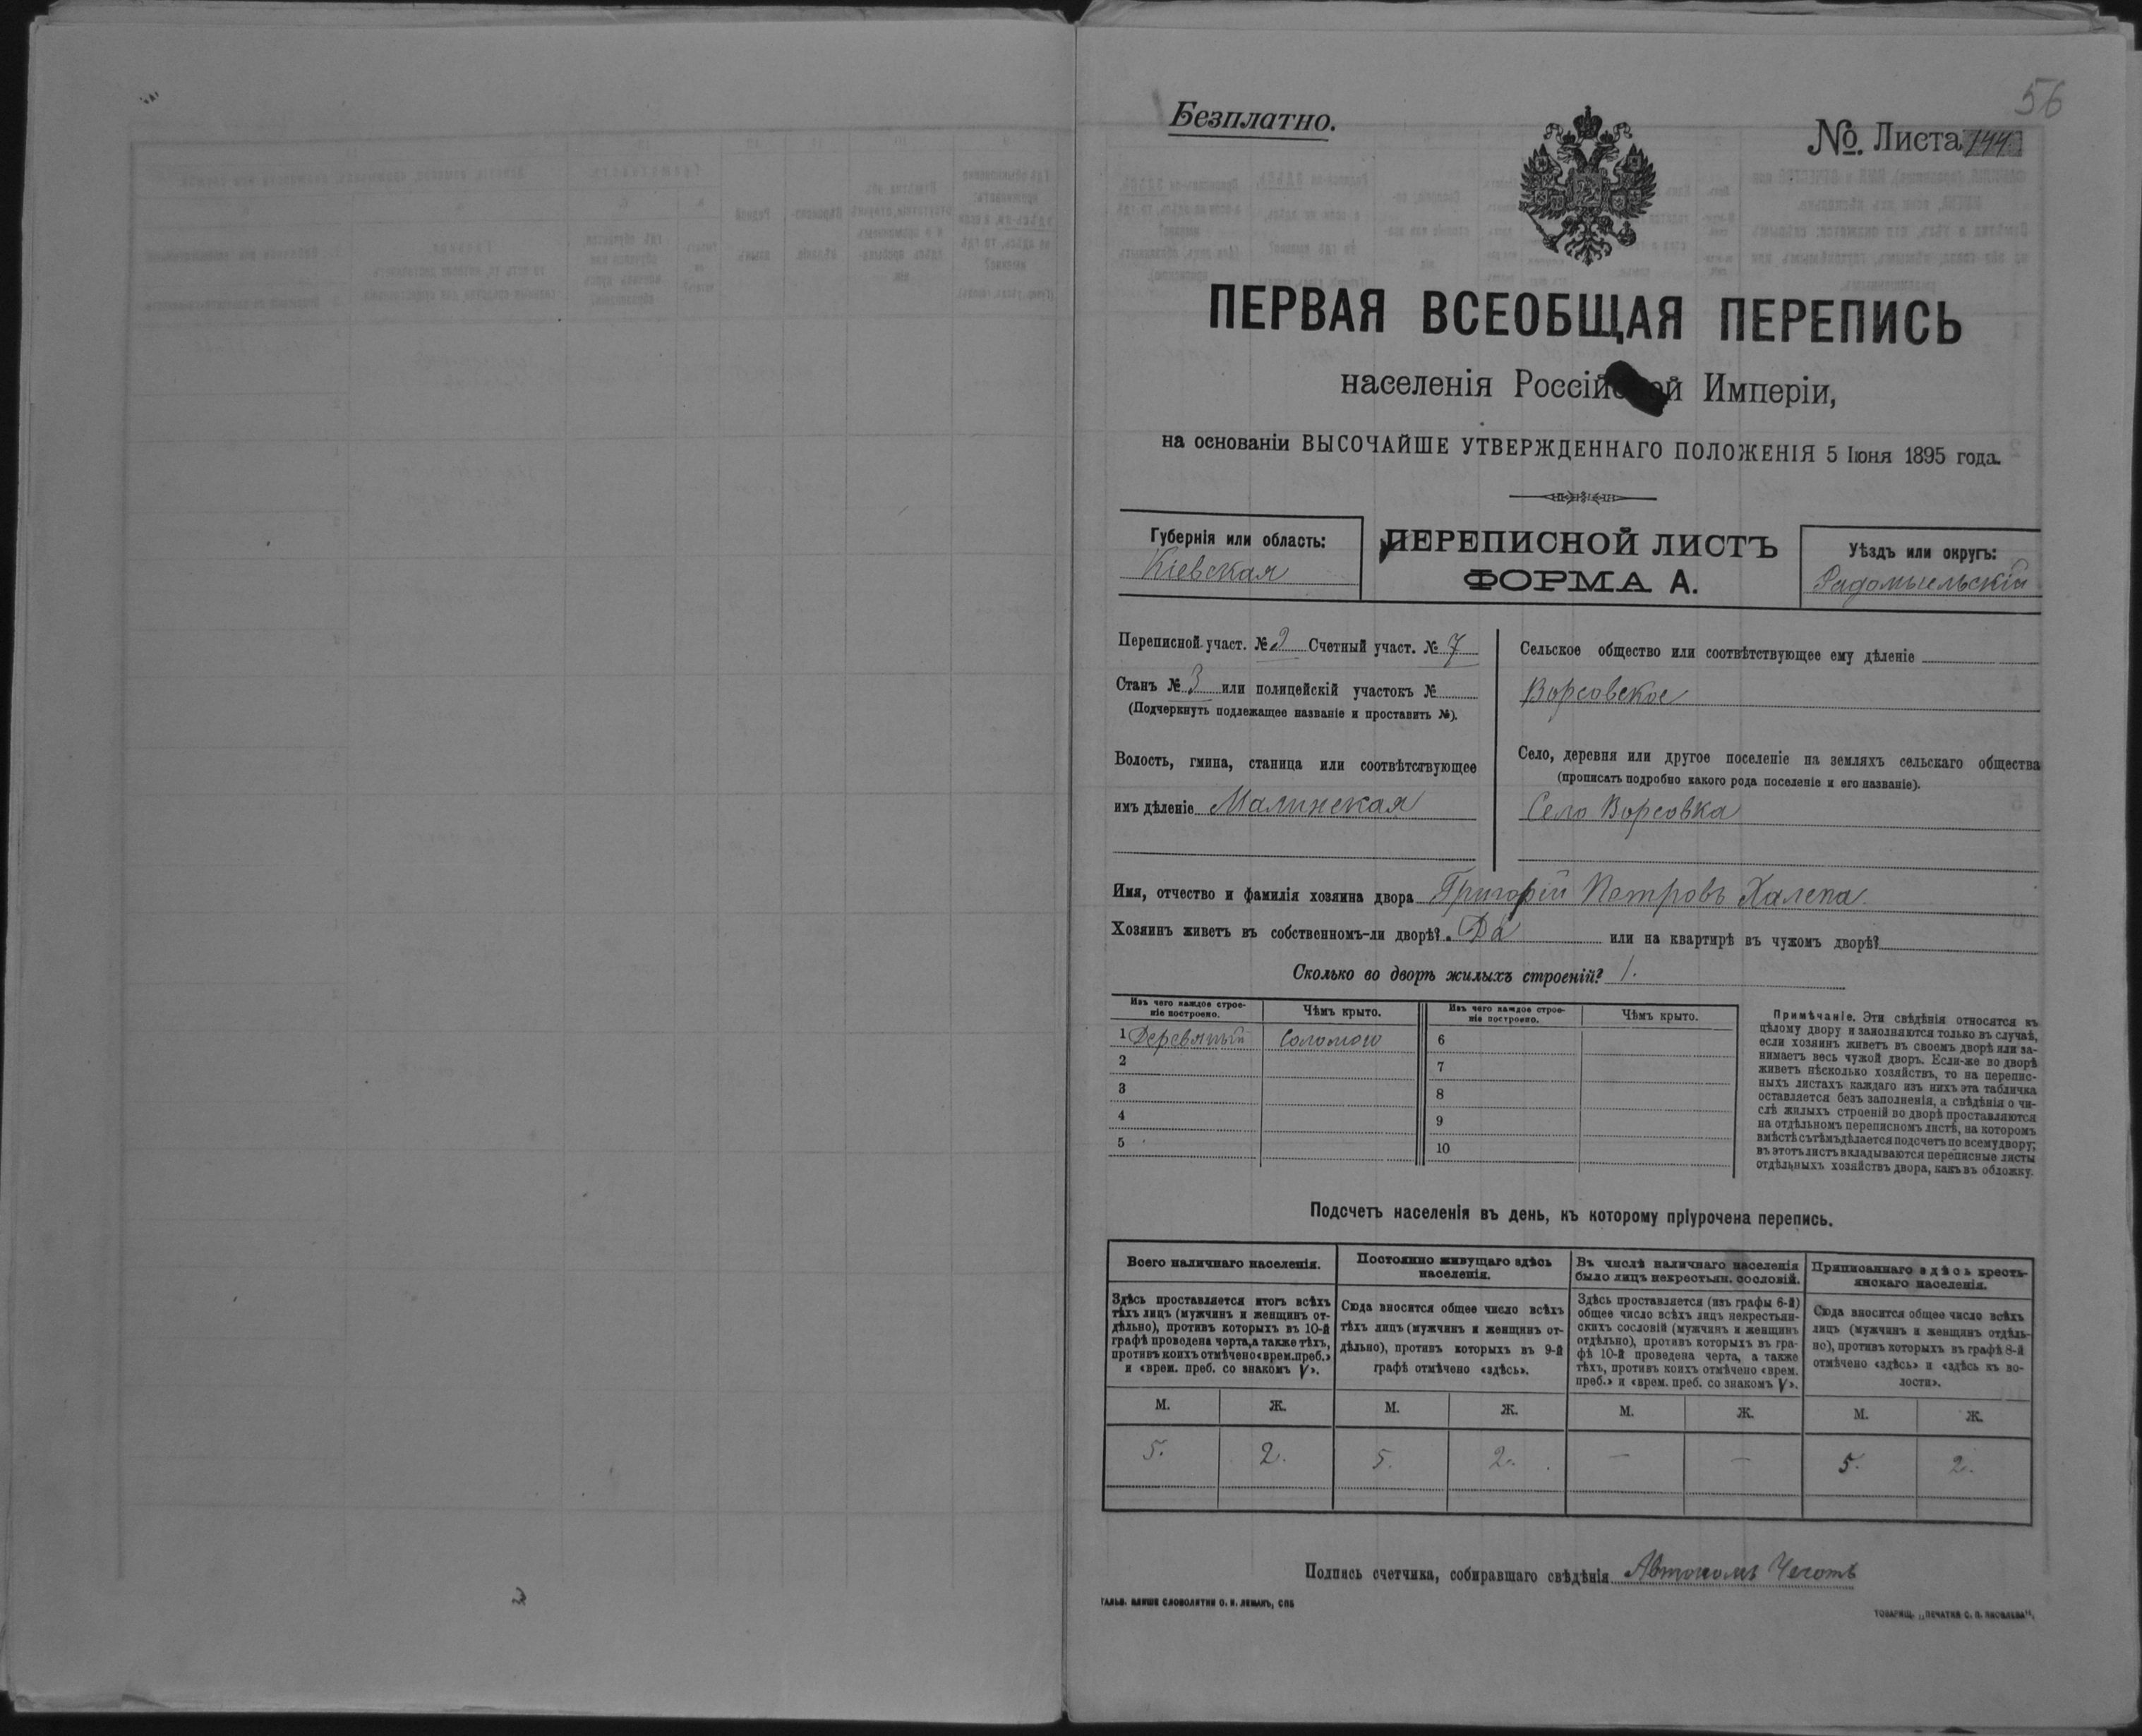 56
Безплатно.
№. Листа 144
ПЕРВАЯ ВСЕОБЩАЯ ПЕРЕПИСЬ
населенія Россійской Имперіи,
на основаніи ВЫСОЧАЙШЕ УТВЕРЖДЕННАГО ПОЛОЖЕНІЯ 5 Іюня 1895 года.
Губернія или область:
Кіевская
ПЕРЕПИСНОЙ ЛИСТЪ
ФОРМА А.
Уѣздъ или округъ:
Радомысльскій
Переписной участ. № 2 Счетный участ. № 7
Станъ № 3 или полицейскій участокъ №
(Подчеркнуть подлежащее названіе и проставить №).
Волость, гмина, станица или соотвѣтствующее
имъ дѣленіе Малинская
Сельское общество или соотвѣтствующее ему дѣленіе
Ворсовское
Село, деревня или другое поселеніе на земляхъ сельскаго общества
(прописать подробно какого рода поселеніе и его названіе).
Село Ворсовка
Имя, отчество и фамилія хозяина двора Григорій Петровъ Халепа.
Хозяинъ живетъ въ собственномъ-ли дворѣ? Да или на квартирѣ въ чужомъ дворѣ?
Сколько во дворѣ жилыхъ строеній? 1.
Изъ чего каждое строе-
ніе построено.
Чѣмъ крыто.
Изъ чего каждое строе-
ніе построено.
Чѣмъ крыто.
1 Деревяный Соломою 6
2 7
3 8
4 9
5 10
Примѣчаніе. Эти свѣдѣнія относятся къ
цѣлому двору и заполняются только въ случаѣ,
если хозяинъ живетъ въ своемъ дворѣ или за-
нимаетъ весь чужой дворъ. Если-же во дворѣ
живетъ нѣсколько хозяйствъ, то на перепис-
ныхъ листахъ каждаго изъ нихъ эта табличка
оставляется безъ заполненія, а свѣдѣнія о чи-
слѣ жилыхъ строеній во дворѣ проставляются
на отдѣльномъ переписномъ листѣ, на которомъ
вмѣстѣ съ тѣмъ дѣлается подсчетъ по всему двору;
въ этотъ листъ вкладываются переписные листы
отдѣльныхъ хозяйствъ двора, какъ въ обложку.
Подсчетъ населенія въ день, къ которому пріурочена перепись.
Всего наличнаго населенія.
Здѣсь проставляется итогъ всѣхъ
тѣхъ лицъ (мужчинъ и женщинъ от-
дѣльно), противъ которыхъ въ 10-й
графѣ проведена черта, а также тѣхъ,
противъ коихъ отмѣчено «врем. преб.»
и «врем. преб. со знакомъ V».
Постоянно живущаго здѣсь
населенія.
Сюда вносится общее число всѣхъ
тѣхъ лицъ (мужчинъ и женщинъ от-
дѣльно), противъ которыхъ въ 9-й
графѣ отмѣчено «здѣсь».
Въ числѣ наличнаго населенія
было лицъ некрестьян. сословій.
Здѣсь проставляется (изъ графы 6-й)
общее число всѣхъ лицъ некрестьян-
скихъ сословій (мужчинъ и женщинъ
отдѣльно), противъ которыхъ въ гра-
фѣ 10-й проведена черта, а также
тѣхъ, противъ коихъ отмѣчено «врем.
преб.» и «врем. преб. со знакомъ V».
Приписаннаго здѣсь кресть-
янскаго населенія.
Сюда вносится общее число всѣхъ
лицъ (мужчинъ и женщинъ отдѣль-
но), противъ которыхъ въ графѣ 8-й
отмѣчено «здѣсь» и «здѣсь къ во-
лости».
М. Ж. М. Ж. М. Ж. М. Ж.
5. 2. 5. 2. — — 5. 2.
Подпись счетчика, собиравшаго свѣдѣнія Автономъ Чеготъ
ГАЛЬВ. КЛИШЕ СЛОВОЛИТНИ О. И. ЛЕМАНЪ, СПБ
ТОВАРИЩ. „ПЕЧАТНЯ С. П. ЯКОВЛЕВА“.